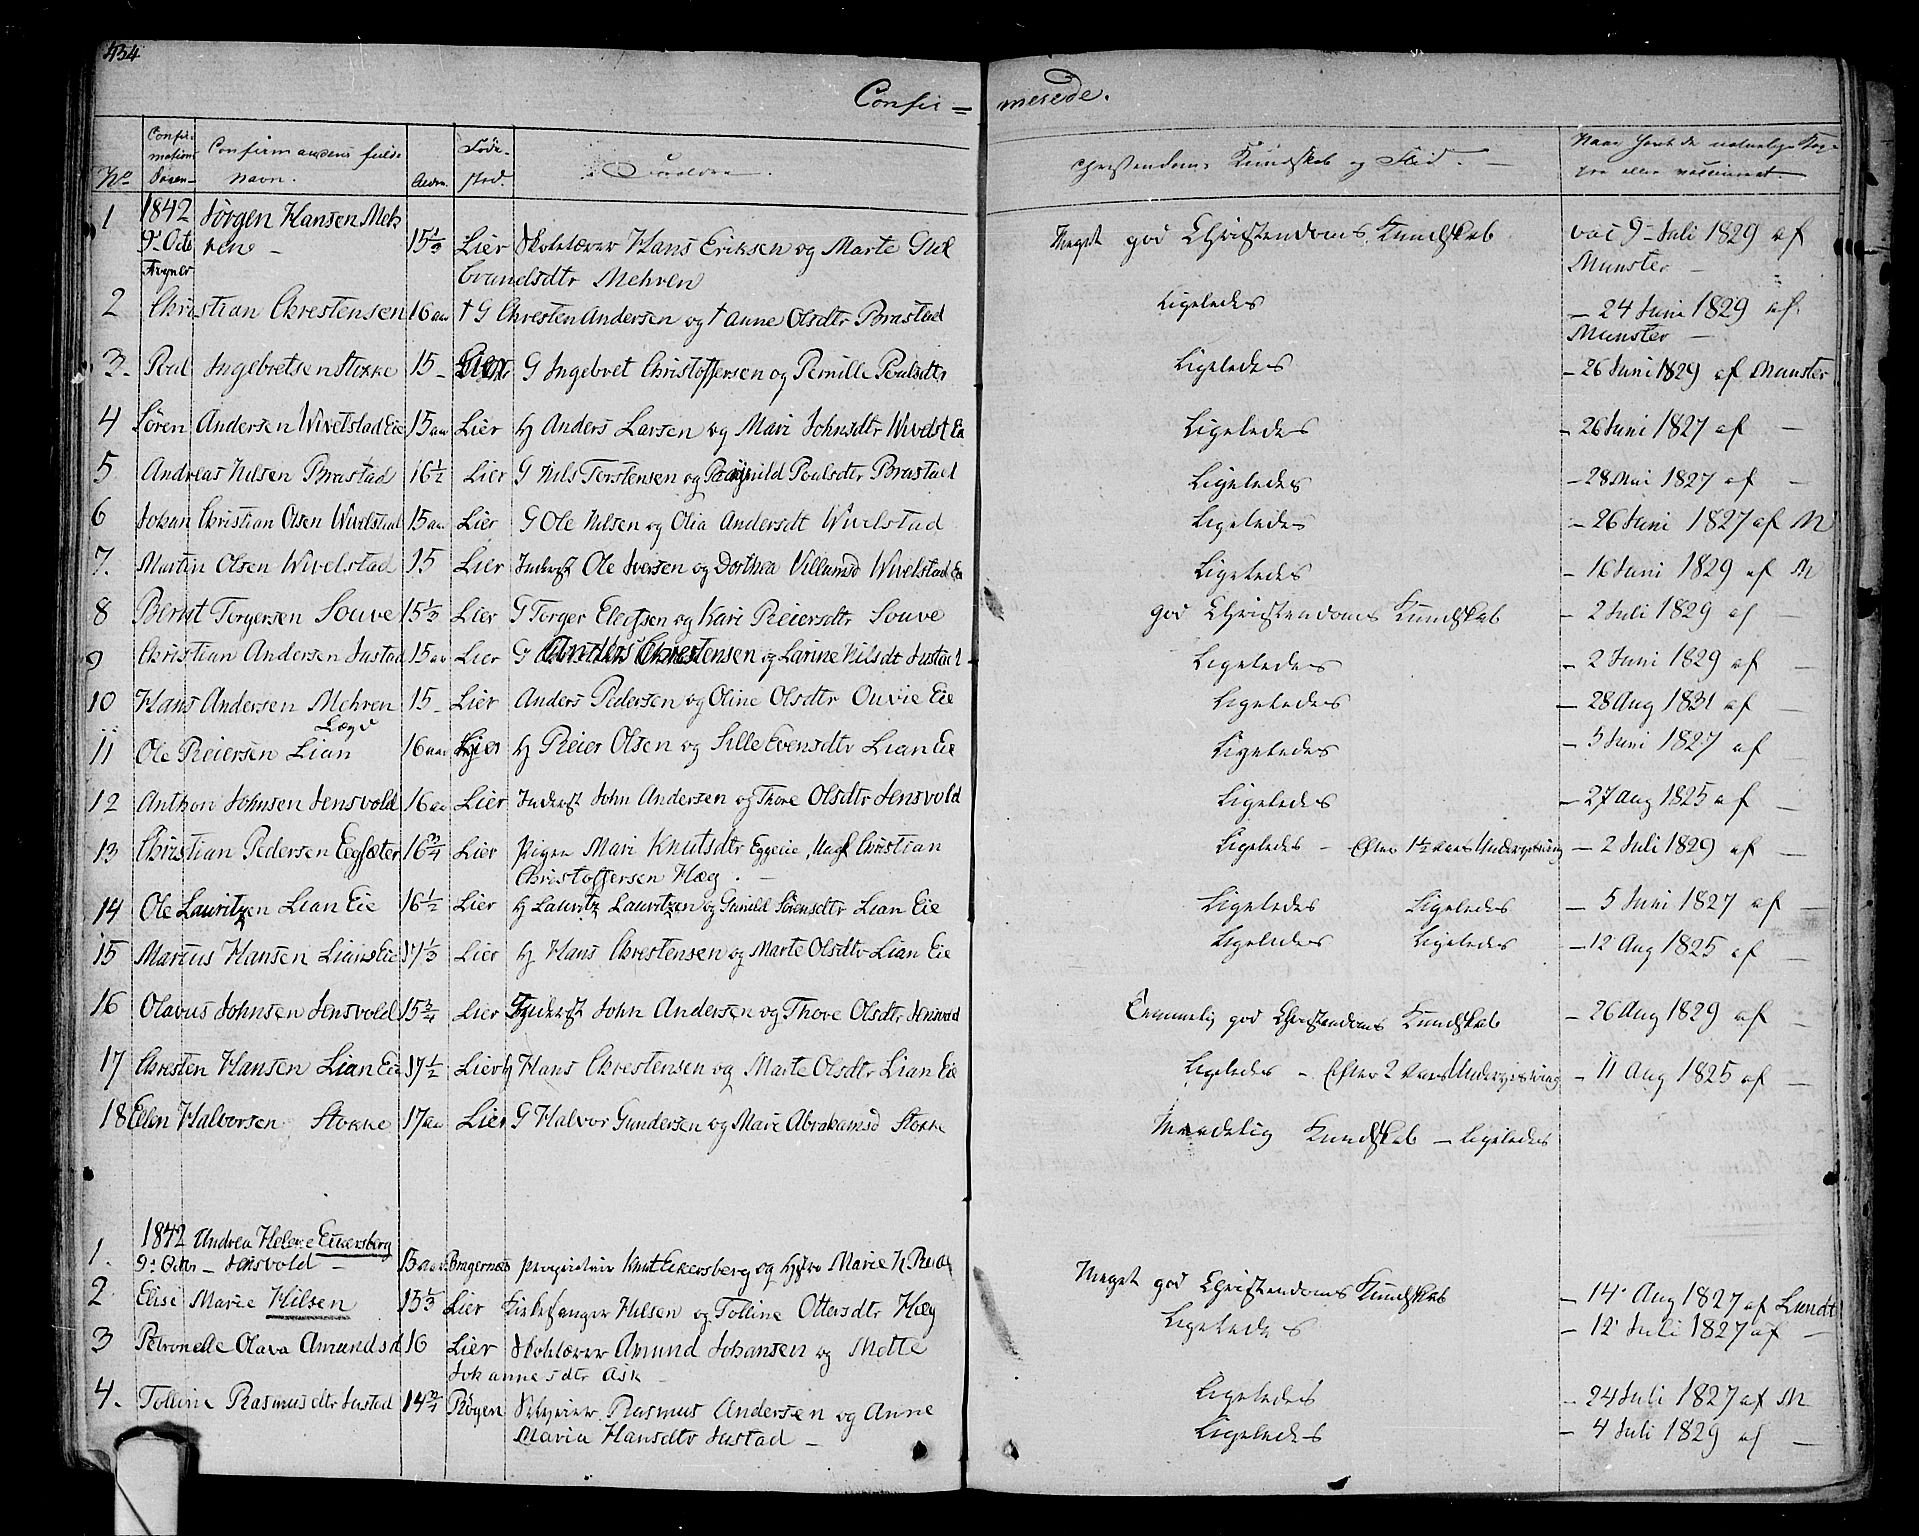 434
Confir= merede.
No
Confirmations Dagen
Confirmandens fulde Navn.
Alder.
Føde-sted.
Forældre.
Christendoms Kundskab og Flid. —
Naar havt de naturlige Kopper eller vaccineret.
1 1842 Jörgen Hansen Meh
9de Octo ren — 15 1/3 Lier Skolelærer Hans Eriksen og Marte Gul Meget god Christendoms Kundskab vac 9 Juli 1829 af
brandsdtr Mehren Munster —
2 Christian Chrestensen 16 aar † G Chresten Andersen og † Anne Olsdtr Brastad Ligeledes — 24 Juni 1829 af
Munster —
3. Poul Ingebretsen Stokke 15 — Lier G Ingebret Christoffersen og Pernille Poulsdtr Ligeledes — 26 Juni 1829 af Munster
4 Sören Andersen Wivelstad Eie 15 aar Lier H Anders Larsen og Mari Johnsdtr Wivelst Eie Ligeledes — 26 Juni 1827 af —
5 Andreas Nilsen Brastad 16 1/2 Lier G Nils Torstensen og Poulsdtr Brastad Ligeledes — 28 Mai 1827 af —
6 Johan Christian Olsen Wivelstad 15 aar Lier G Ole Nilsen og Olia Andersdt Wivelstad Ligeledes — 26 Juni 1827 af M
7. Martin Olsen Wivelstad 15 Lier Inderst Ole Iversen og Dorthea Villumsd Wivelstad Eie Ligeledes — 16 Juni 1829 af M
8 Bernt Torgersen Souve 15 1/3 Lier G Torger Ellefsen og Kari Reiersdtr Souve god Christendoms Kundskab — 2 Juli 1829 af —
9 Christian Andersen Justad 15 aar Lier G Anders Chrestensen og Larine Nilsdt Justad Ligeledes — 2 Juni 1829 af —
10 Hans Andersen Mehren 15 — Lier Anders Pedersen og Oline Olsdtr Ouvie Eie Ligeledes — 28 Aug 1831 af —
Lægd
11 Ole Reiersen Lian 16 aar Lier H Reier Olsen og Sille Evensdtr Lian Eie Ligeledes — 5 Juni 1827 af —
12 Anthon Johnsen Jensvold 16 aar Lier Inderst John Andersen og Thore Olsdtr Jensvold Ligeledes — 27 Aug 1825 af —
13 Christian Pedersen Eegsæter 16 3/4 Lier Pigen Mari Knutsdtr Eggeeie, Ungk Christian Ligeledes — Efter 1 1/2 aars Underviisning — 2 Juli 1829 af —
Christoffersen Hæg. —
14 Ole Lauritzen Lian Eie 16 1/2 Lier H Lauritz Lauritzen og Gunild Sörensdtr Lian Eie Ligeledes Ligeledes — 5 Juni 1827 af —
15 Marcus Hansen Lians Eie 17 1/3 Lier H Hans Chrestensen og Marte Olsdtr Lian Eie Ligeledes Ligeledes — 12 Aug 1825 af —
16 Olavus Johnsen Jensvold 15 3/4 Lier Inderst John Andersen og Thore Olsdtr Jensvold Temmelig god Christendoms Kundskab — 26 Aug 1829 af —
17 Chresten Hansen Lian Eie 17 1/2 Lier H Hans Chrestensen og Marte Olsdtr Lian Eie Ligeledes — Efter 2 aars Underviisning — 11 Aug 1825 af —
18 Ellen Halvorsen Stokke 17 aar Lier G Halvor Gundersen og Mari Abrahamsd Stokke Maadelig Kundskab — Ligeledes
1. 1842 Andrea Helene Eckersberg
9de Octbr — Jensvold — 15 aar Bragernæs Proprietair Knut Eckersberg og Marie Meget god Christendoms Kundskab — 14 Aug 1827 af Lundt
2 Elise Marie Nilsen 15 1/3 Lier Kirkesanger Nilsen og Tolline Ottersdtr Hæg Ligeledes — 12 Juli 1827 af —
3 Petronelle Olava Amundsd 16 Lier Skolelærer Amund Johansen og Mette Ligeledes — 24 Juli 1827 af M
Johannesdtr Ask —
4. Tolline Rasmusdtr Justad 14 3/4 Røgen Selveier Rasmus Andersen og Anne Ligeledes — 4 Juli 1829 af —
Maria Hansdtr Justad —